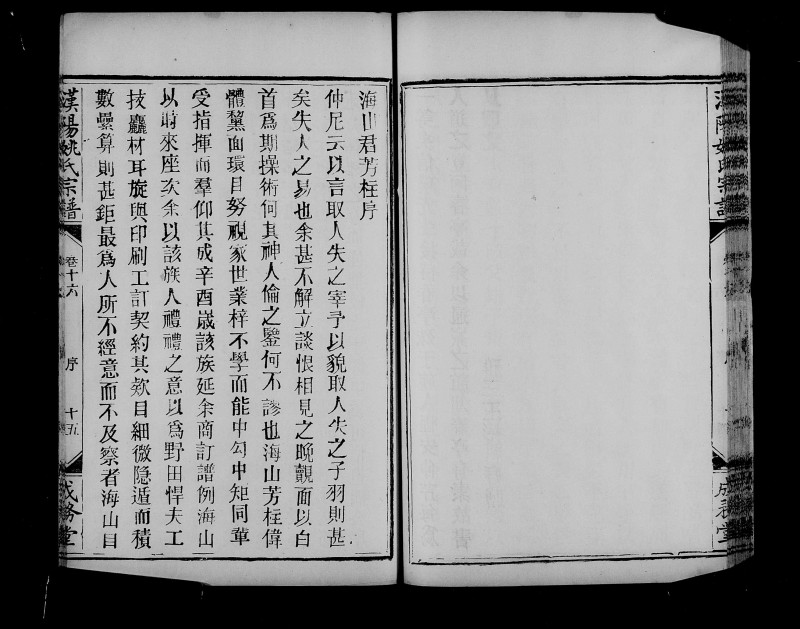 海山君芳桂序
仲尼云以言取人失之宰予以貌取人失之子羽則甚
矣失人之易也余甚不解立談恨相見之晚覿面以白
首爲期操術何其神人倫之鑒何不謬也海山芳桂偉
體黧面環目努視家世業梓不學而能中勾中矩同輩
受指揮而羣仰其成辛酉嵗該族延余商訂譜例海山
以時來座次余以該族人禮禮之意以爲野田悍夫工
技麤材耳旋與印刷工訂契約其欵目細微隐遁而積
數纍算則甚鉅最爲人所不經意而不及察者海山目
漢陽姚氏宗譜
卷十六
序
十五
成務堂